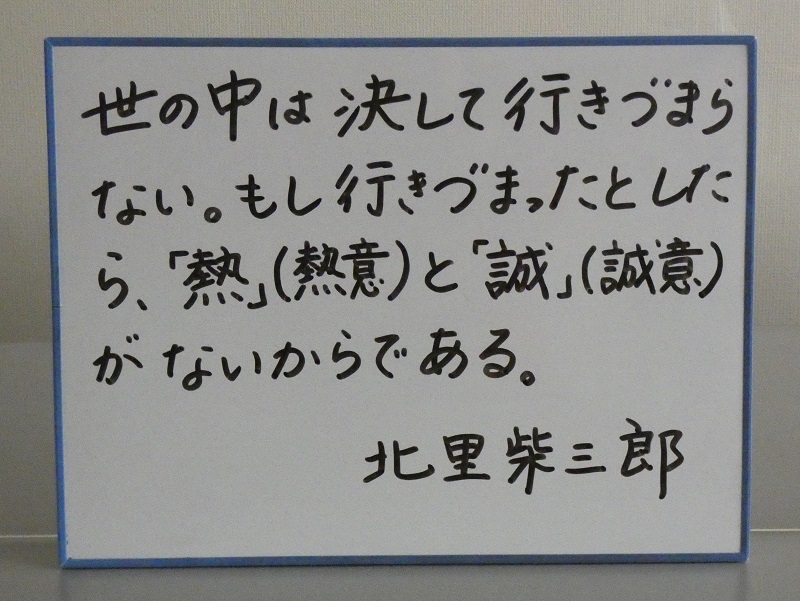 世の中は決して行きづまら
ない。もし行きづまったとした
ら、「熱」(熱意)と「誠」(誠意)
がないからである。
北里柴三郎